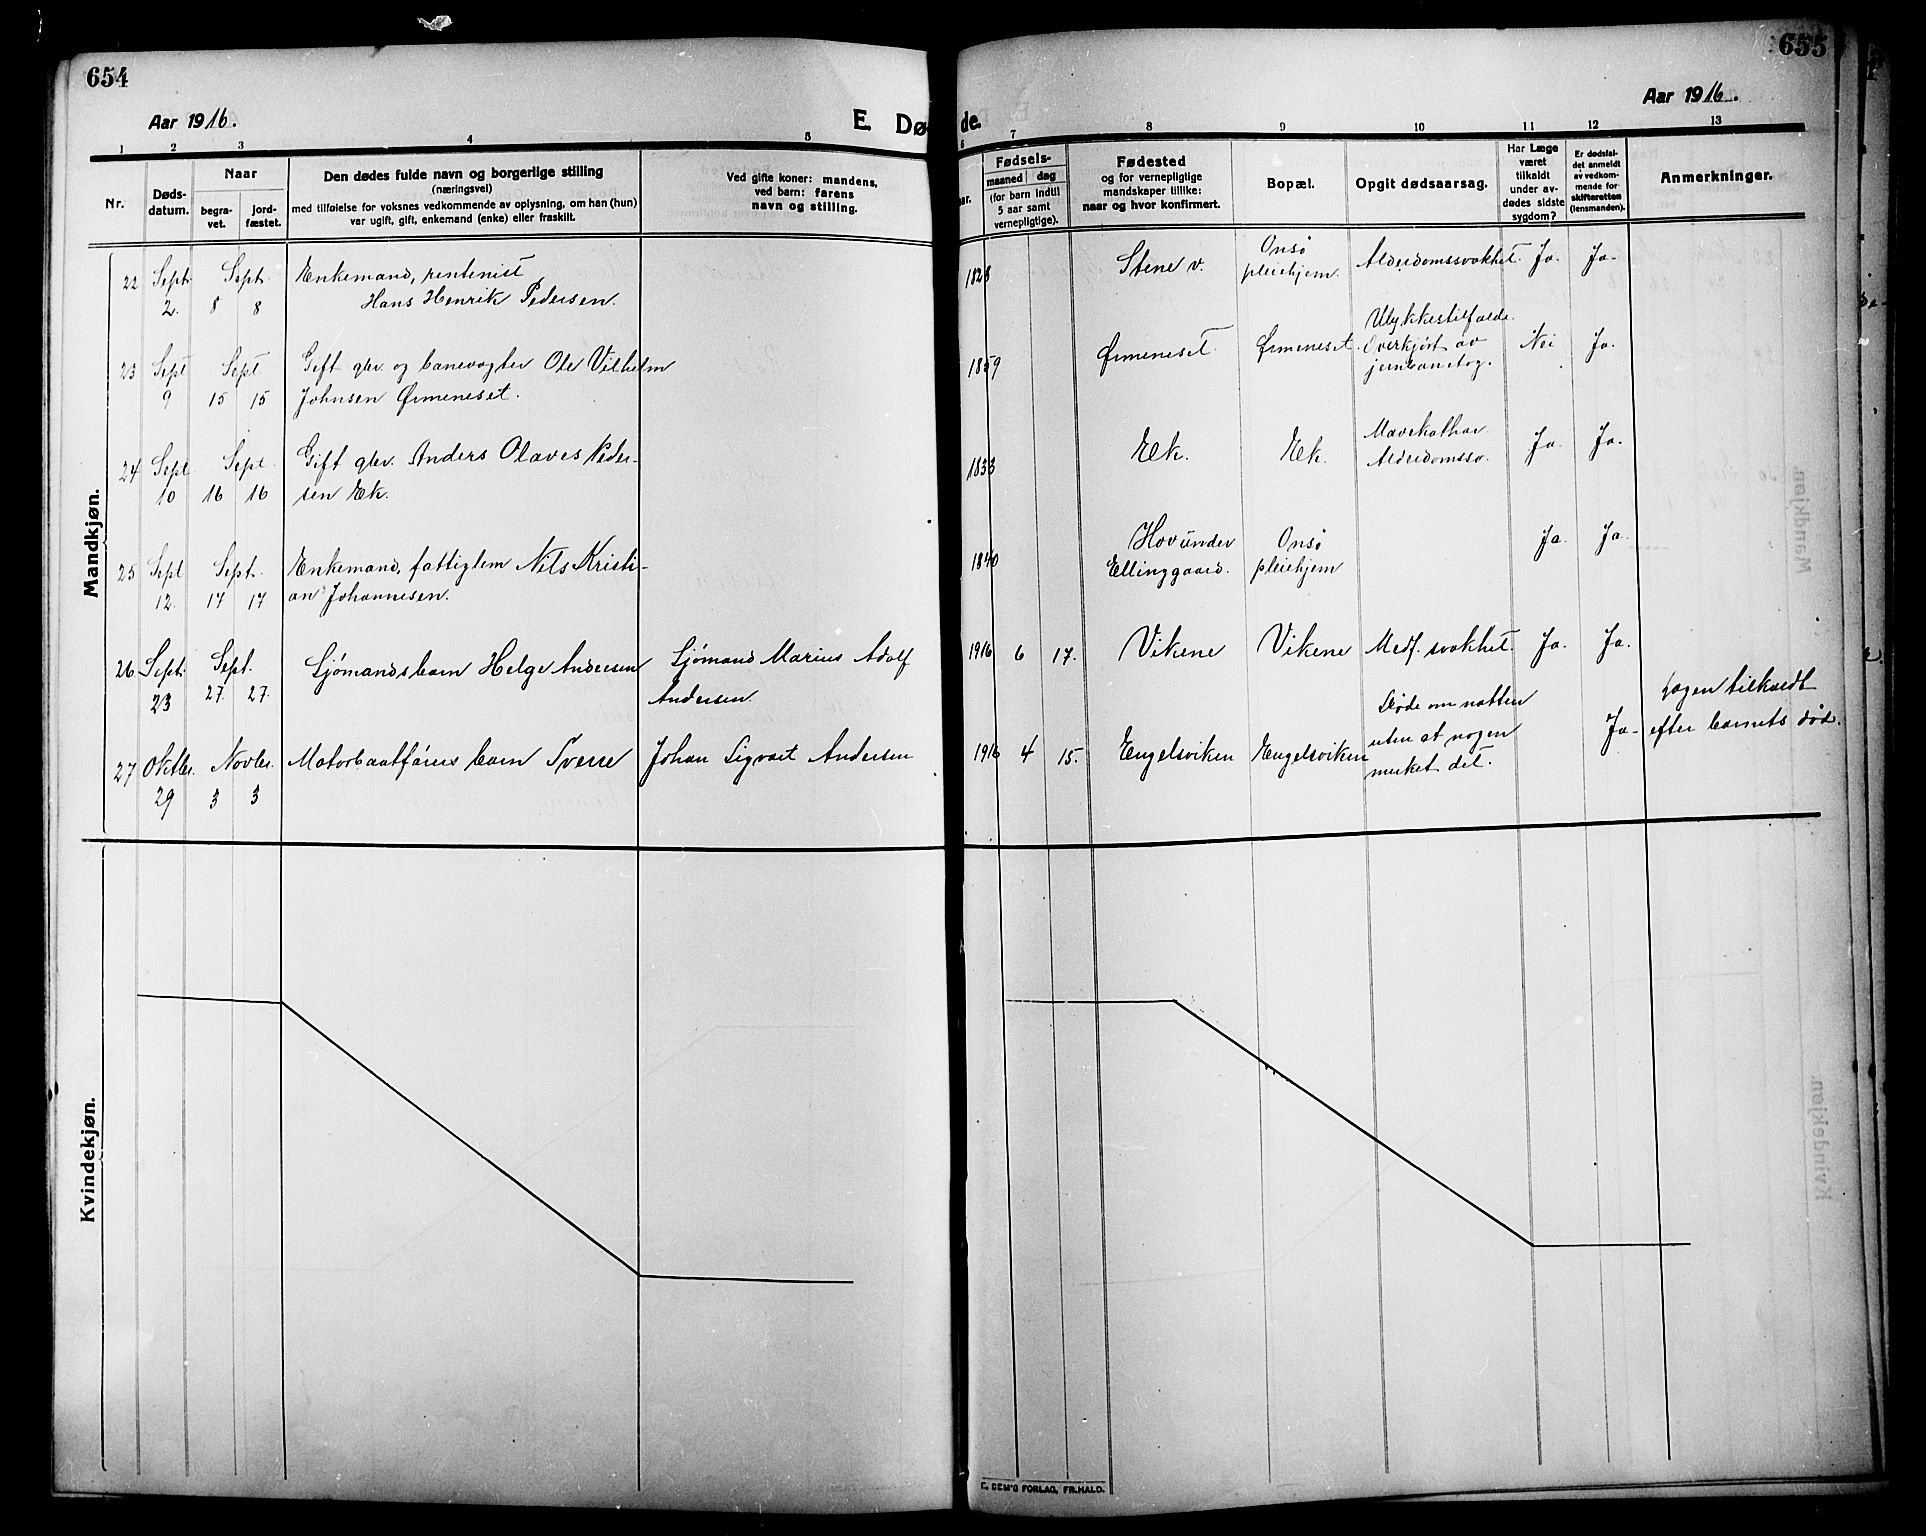 654
655
Aar 1916.
E. Dø
de.
Aar 1916.
1 2 3 4 5
6 7 8 9 10 11 12 13
Nr.
Døds-
datum.
Naar
begra-
vet.
jord-
fæstet.
Den dødes fulde navn og borgerlige stilling
(næringsvei)
med tilføielse for voksnes vedkommende av oplysning, om han (hun)
var ugift, gift, enkemand (enke) eller fraskilt.
Ved gifte koner: mandens,
ved barn: farens
navn og stilling.
aar.
Fødsels-
maaned dag
(for barn indtil
5 aar samt
vernepligtige).
Fødested
og for vernepligtige
mandskaper tillike:
naar og hvor konfirmert.
Bopæl.
Opgit dødsaarsag.
Har Læge
været
tilkaldt
under av-
dødes sidste
sygdom?
Er dødsfal-
det anmeldt
av vedkom-
mende for
skifteretten
(lensmanden).
Anmerkninger.
Mandkjøn.
22 Sept. 2. Sept. 8 8
Enkemand, rentenist
Hans Henrik Pedersen.
1828 Stene v.
Onsö
pleiehjem.
Alderdomssvakhet. Ja. Ja.
23 Sept 9 Sept 15 15
Gift gbr. og banevogter Ole Vilhelm
Johnsen Ørmeneset.
1859 Ørmeneset. Ørmeneset.
Ulykkestilfælde.
Overkjört av
jernbanetog.
Nei Ja.
24 Sept. 10 Sept. 16 16
Gift gbr. Anders Olaves Peder-
sen Ek.
1833 Ek. Ek.
Mavekathar.
Alderdomssv.
Ja. Ja.
25 Sept 12. Sept. 17 17
Enkemand, fattiglem Nils Kristi-
an Johannesen.
1840
Hov under
Ellinggaard.
Onsö
pleiehjem
Ja. Ja.
26 Sept. 23 Sept. 27. 27.
Sjömandsbarn Helge Andersen
Sjömand Marius Adolf
Andersen.
1916 6 17. Vikene Vikene Medf. svakhet. Ja. Ja.
27 Oktbr. 29 Novbr. 3 3
Motorbaatförers barn Sverre
Johan Sigvart Andersen
1916 4 15. Engelsviken Engelsviken
Döde om natten
uten at nogen
merket det.
Ja.
Lægen tilkaldt
efter barnets död.
Kvindekjøn.
E. SEM'S FORLAG, FR.HALD.